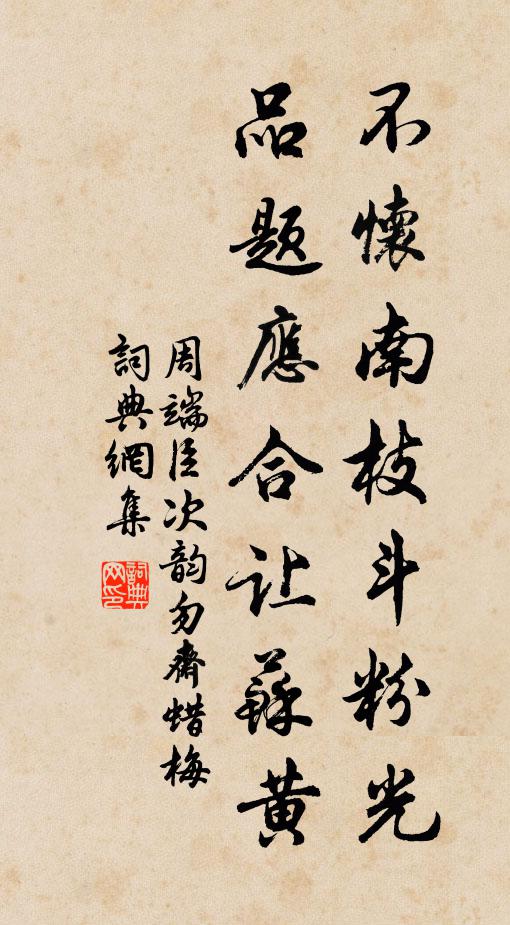 不懷南枝斗粉光
品题應合让蘇黄
周端臣次韵勿齋蜡梅
詞典網集
詞典
网印